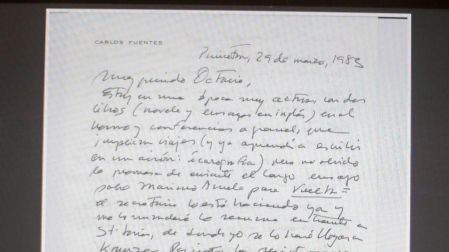 CARLOS FUENTES
Princeton, 29 de marzo, 1983
Muy querido Octavio,
Estoy en una época muy activa con dos
libros (novela y ensayos en inglés) en el
horno y conferencias a granel, que
implican viajes (y ya aprendí a escribir
en un avión: ), pero no olvido
la promesa de enviarte el largo ensayo
sobre Mariano Azuela para Vuelta =
el secretario lo está haciendo ya y
me lo mandará la semana entrante
St. Louis, de donde yo se lo haré llegar a
Krauze.